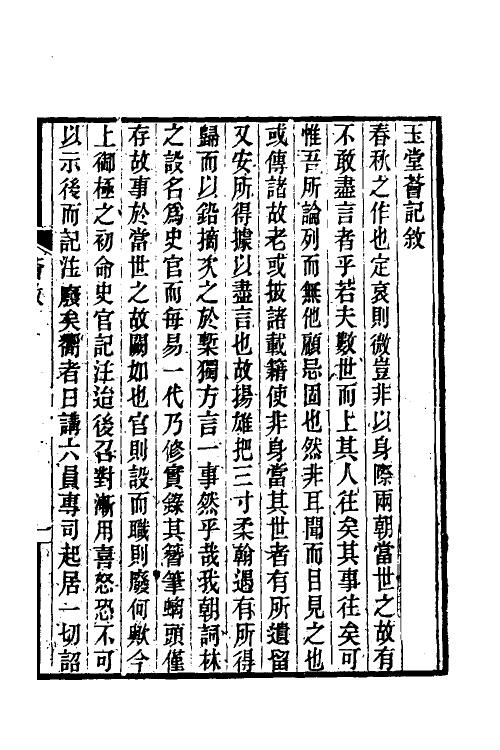 玉堂薈記敘
春秋之作也定哀則微豈非以身際兩朝當世之故有
不敢盡言者乎若夫數世而上其人往矣其事往矣可
惟吾所論列而無他顧忌固也然非耳聞而目見之也
或傳諸故老或披諸載籍使非身當其世者有所遺留
又安所得據以盡言也故揚雄把三寸柔翰遇有所得
歸而以鉛摘次之於槧獨方言一事然乎哉我朝詞林
之設名爲史官而每易一代乃修實錄其簪筆螭頭僅
存故事於當世之故闕如也官則設而職則廢何歟今
上御極之初命史官記注迨後召對漸用喜怒恐不可
以示後而記注廢矣嚮者日講六員專司起居一切詔